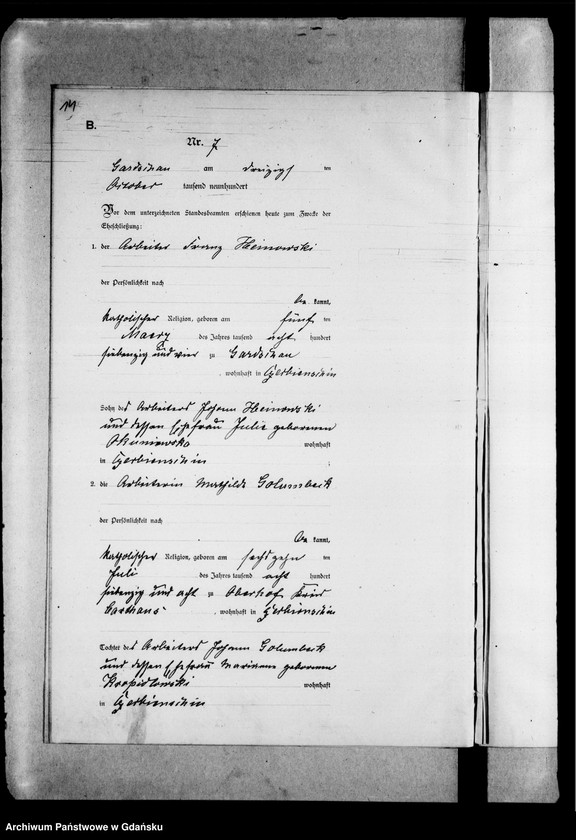 B.
Nr. 7
Gardschau am dreizigs ten
October tausend neunhundert
Vor dem unterzeichneten Standesbeamten erschienen heute zum Zwecke der
Eheschließung:
1. der Arbeiter Franz Heinowski
der Persönlichkeit nach
be kannt,
katholischer Religion, geboren am fünf ten
Maerz des Jahres tausend acht hundert
siebenzig und vier zu Gardschau
, wohnhaft in
Sohn des Arbeiters Johann Heinowski
und dessen Ehefrau Julie geborenen
wohnhaft
in
2. die Arbeiterin Mathilde Golumbeck
der Persönlichkeit nach
be kannt,
katholischer Religion, geboren am sechszehn ten
Juli des Jahres tausend acht hundert
siebenzig und acht zu Oberhof Kreis
Carthaus , wohnhaft in
Tochter des Arbeiters Johann Golumbeck
und dessen Ehefrau Marianne geborenen
Kropidlowski wohnhaft
in
Archiwum Państwowe w Gdańsku